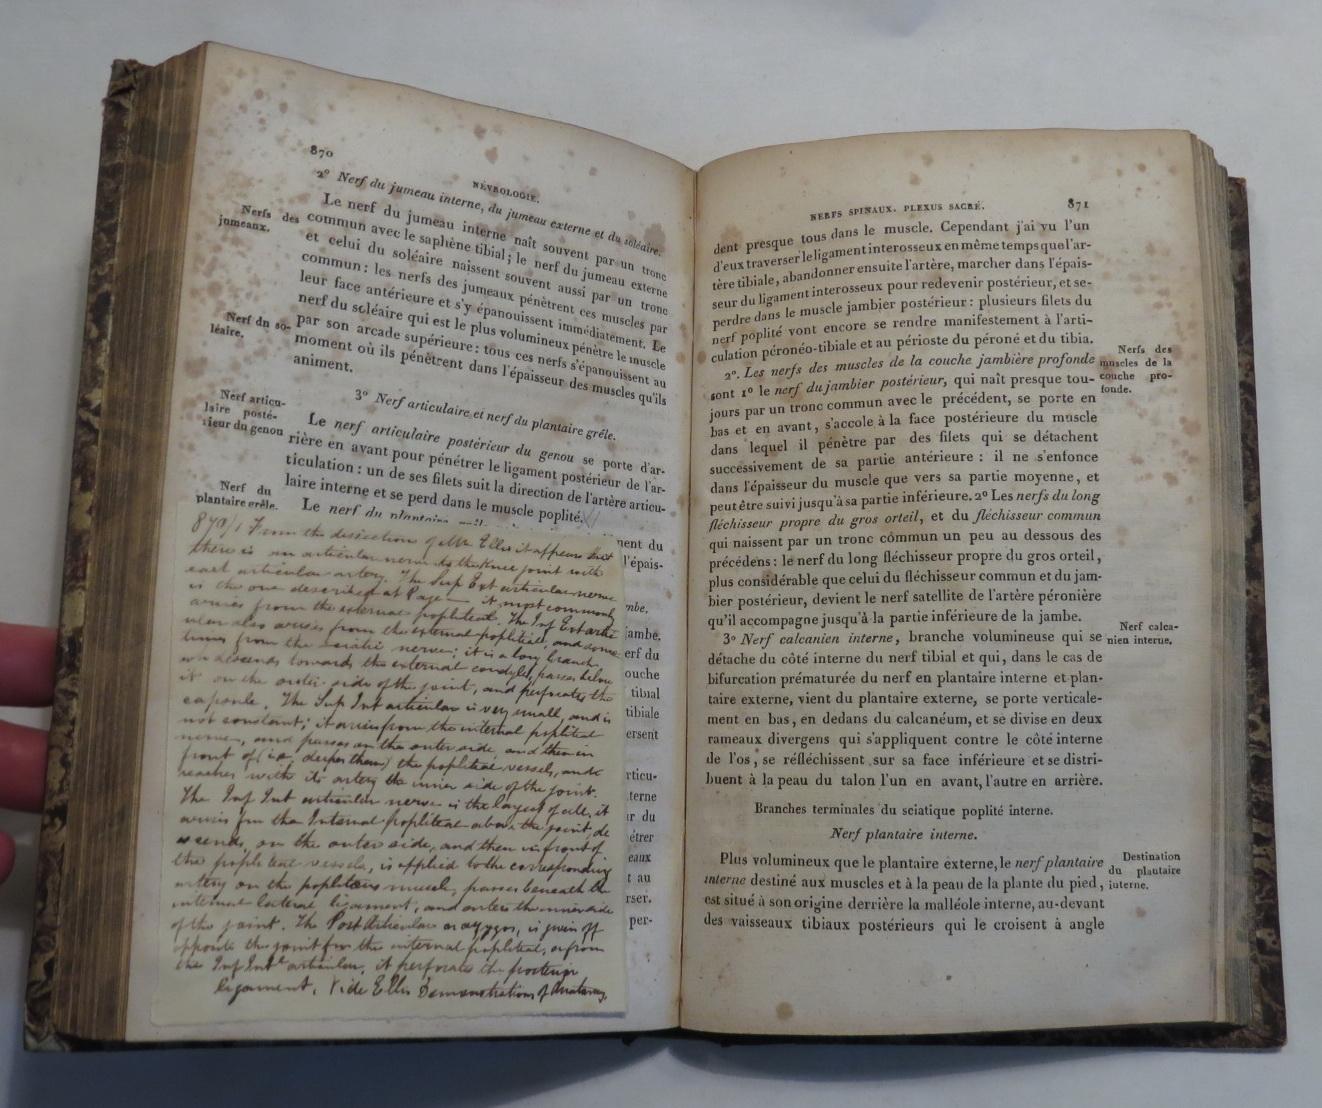 870
NÉVROLOGIE.
2° Nerf du jumeau interne, du jumeau externe et du soléaire.
Nerfs des
jumeaux.
Le nerf du jumeau interne naît souvent par un tronc
commun avec le saphène tibial; le nerf du jumeau externe
et celui du soléaire naissent souvent aussi par un tronc
commun: les nerfs des jumeaux pénètrent ces muscles par
leur face antérieure et s'y épanouissent immédiatement. Le
Nerf du so-
léaire.
nerf du soléaire qui est le plus volumineux pénètre le muscle
par son arcade supérieure: tous ces nerfs s'épanouissent au
moment où ils pénètrent dans l'épaisseur des muscles qu'ils
animent.
3° Nerf articulaire et nerf du plantaire grêle.
Nerf articu-
laire posté-
rieur du genou
Le nerf articulaire postérieur du genou se porte d'ar-
rière en avant pour pénétrer le ligament postérieur de l'ar-
ticulation: un de ses filets suit la direction de l'artère articu-
laire interne et se perd dans le muscle poplité.
Nerf du
plantaire grêle.
Le nerf du plantaire
870/1 From the dissection of Mr. Ellis it appears that
there is an articular nerve to the knee joint with
each articular artery. The Sup Ext articular nerve
is the one described at Page — it most commonly
arises from the external popliteal. The Inf Ext artic
ular also arises from the external popliteal, and some
times from the sciatic nerve; it is a long branch,
descends towards the external condyle, passes below
it on the outer side of the joint, and perforates the
capsule. The Sup Int articular is very small, and is
not constant; it arises from the internal popliteal
nerve, and passes on the outer side, and then in
front of (i.e. deeper than) the popliteal vessels, and
reaches with its artery the inner side of the joint.
The Inf Int articular nerve is the largest of all, it
arises fm the Internal popliteal above the joint, de
scends, on the outer side, and then in front of
the popliteal vessels, is applied to the corresponding
artery on the popliteus muscle, passes beneath the
internal lateral ligament, and enters the inner side
of the joint. The Post Articular or azygos, is given off
opposite the joint fm the internal popliteal, or from
the Inf Intl articular, it perforates the posterior
ligament. Vide Ellis Demonstrations of Anatomy.
ment du
l'épais-
mbe,
jambe.
erf du
ouche
tibial
tibiale
ersent
rticu-
terne
r du
étrer
eaux
t au
rser.
per-
NERFS SPINAUX. PLEXUS SACRÉ.
871
dent presque tous dans le muscle. Cependant j'ai vu l'un
d'eux traverser le ligament interosseux en même temps que l'ar-
tère tibiale, abandonner ensuite l'artère, marcher dans l'épais-
seur du ligament interosseux pour redevenir postérieur, et se-
perdre dans le muscle jambier postérieur: plusieurs filets du
nerf poplité vont encore se rendre manifestement à l'arti-
culation péronéo-tibiale et au périoste du péroné et du tibia.
Nerfs des
muscles de la
couche pro-
fonde.
2°. Les nerfs des muscles de la couche jambière profonde
sont 1° le nerf du jambier postérieur, qui naît presque tou-
jours par un tronc commun avec le précédent, se porte en
bas et en avant, s'accole à la face postérieure du muscle
dans lequel il pénètre par des filets qui se détachent
successivement de sa partie antérieure: il ne s'enfonce
dans l'épaisseur du muscle que vers sa partie moyenne, et
peut être suivi jusqu'à sa partie inférieure. 2° Les nerfs du long
fléchisseur propre du gros orteil, et du fléchisseur commun
qui naissent par un tronc commun un peu au dessous des
précédens: le nerf du long fléchisseur propre du gros orteil,
plus considérable que celui du fléchisseur commun et du jam-
bier postérieur, devient le nerf satellite de l'artère péronière
qu'il accompagne jusqu'à la partie inférieure de la jambe.
Nerf calca-
nien interne.
3° Nerf calcanien interne, branche volumineuse qui se
détache du côté interne du nerf tibial et qui, dans le cas de
bifurcation prématurée du nerf en plantaire interne et plan-
taire externe, vient du plantaire externe, se porte verticale-
ment en bas, en dedans du calcanéum, et se divise en deux
rameaux divergens qui s'appliquent contre le côté interne
de l'os, se réfléchissent sur sa face inférieure et se distri-
buent à la peau du talon l'un en avant, l'autre en arrière.
Branches terminales du sciatique poplité interne.
Nerf plantaire interne.
Destination
du plantaire
interne.
Plus volumineux que le plantaire externe, le nerf plantaire
interne destiné aux muscles et à la peau de la plante du pied,
est situé à son origine derrière la malléole interne, au-devant
des vaisseaux tibiaux postérieurs qui le croisent à angle